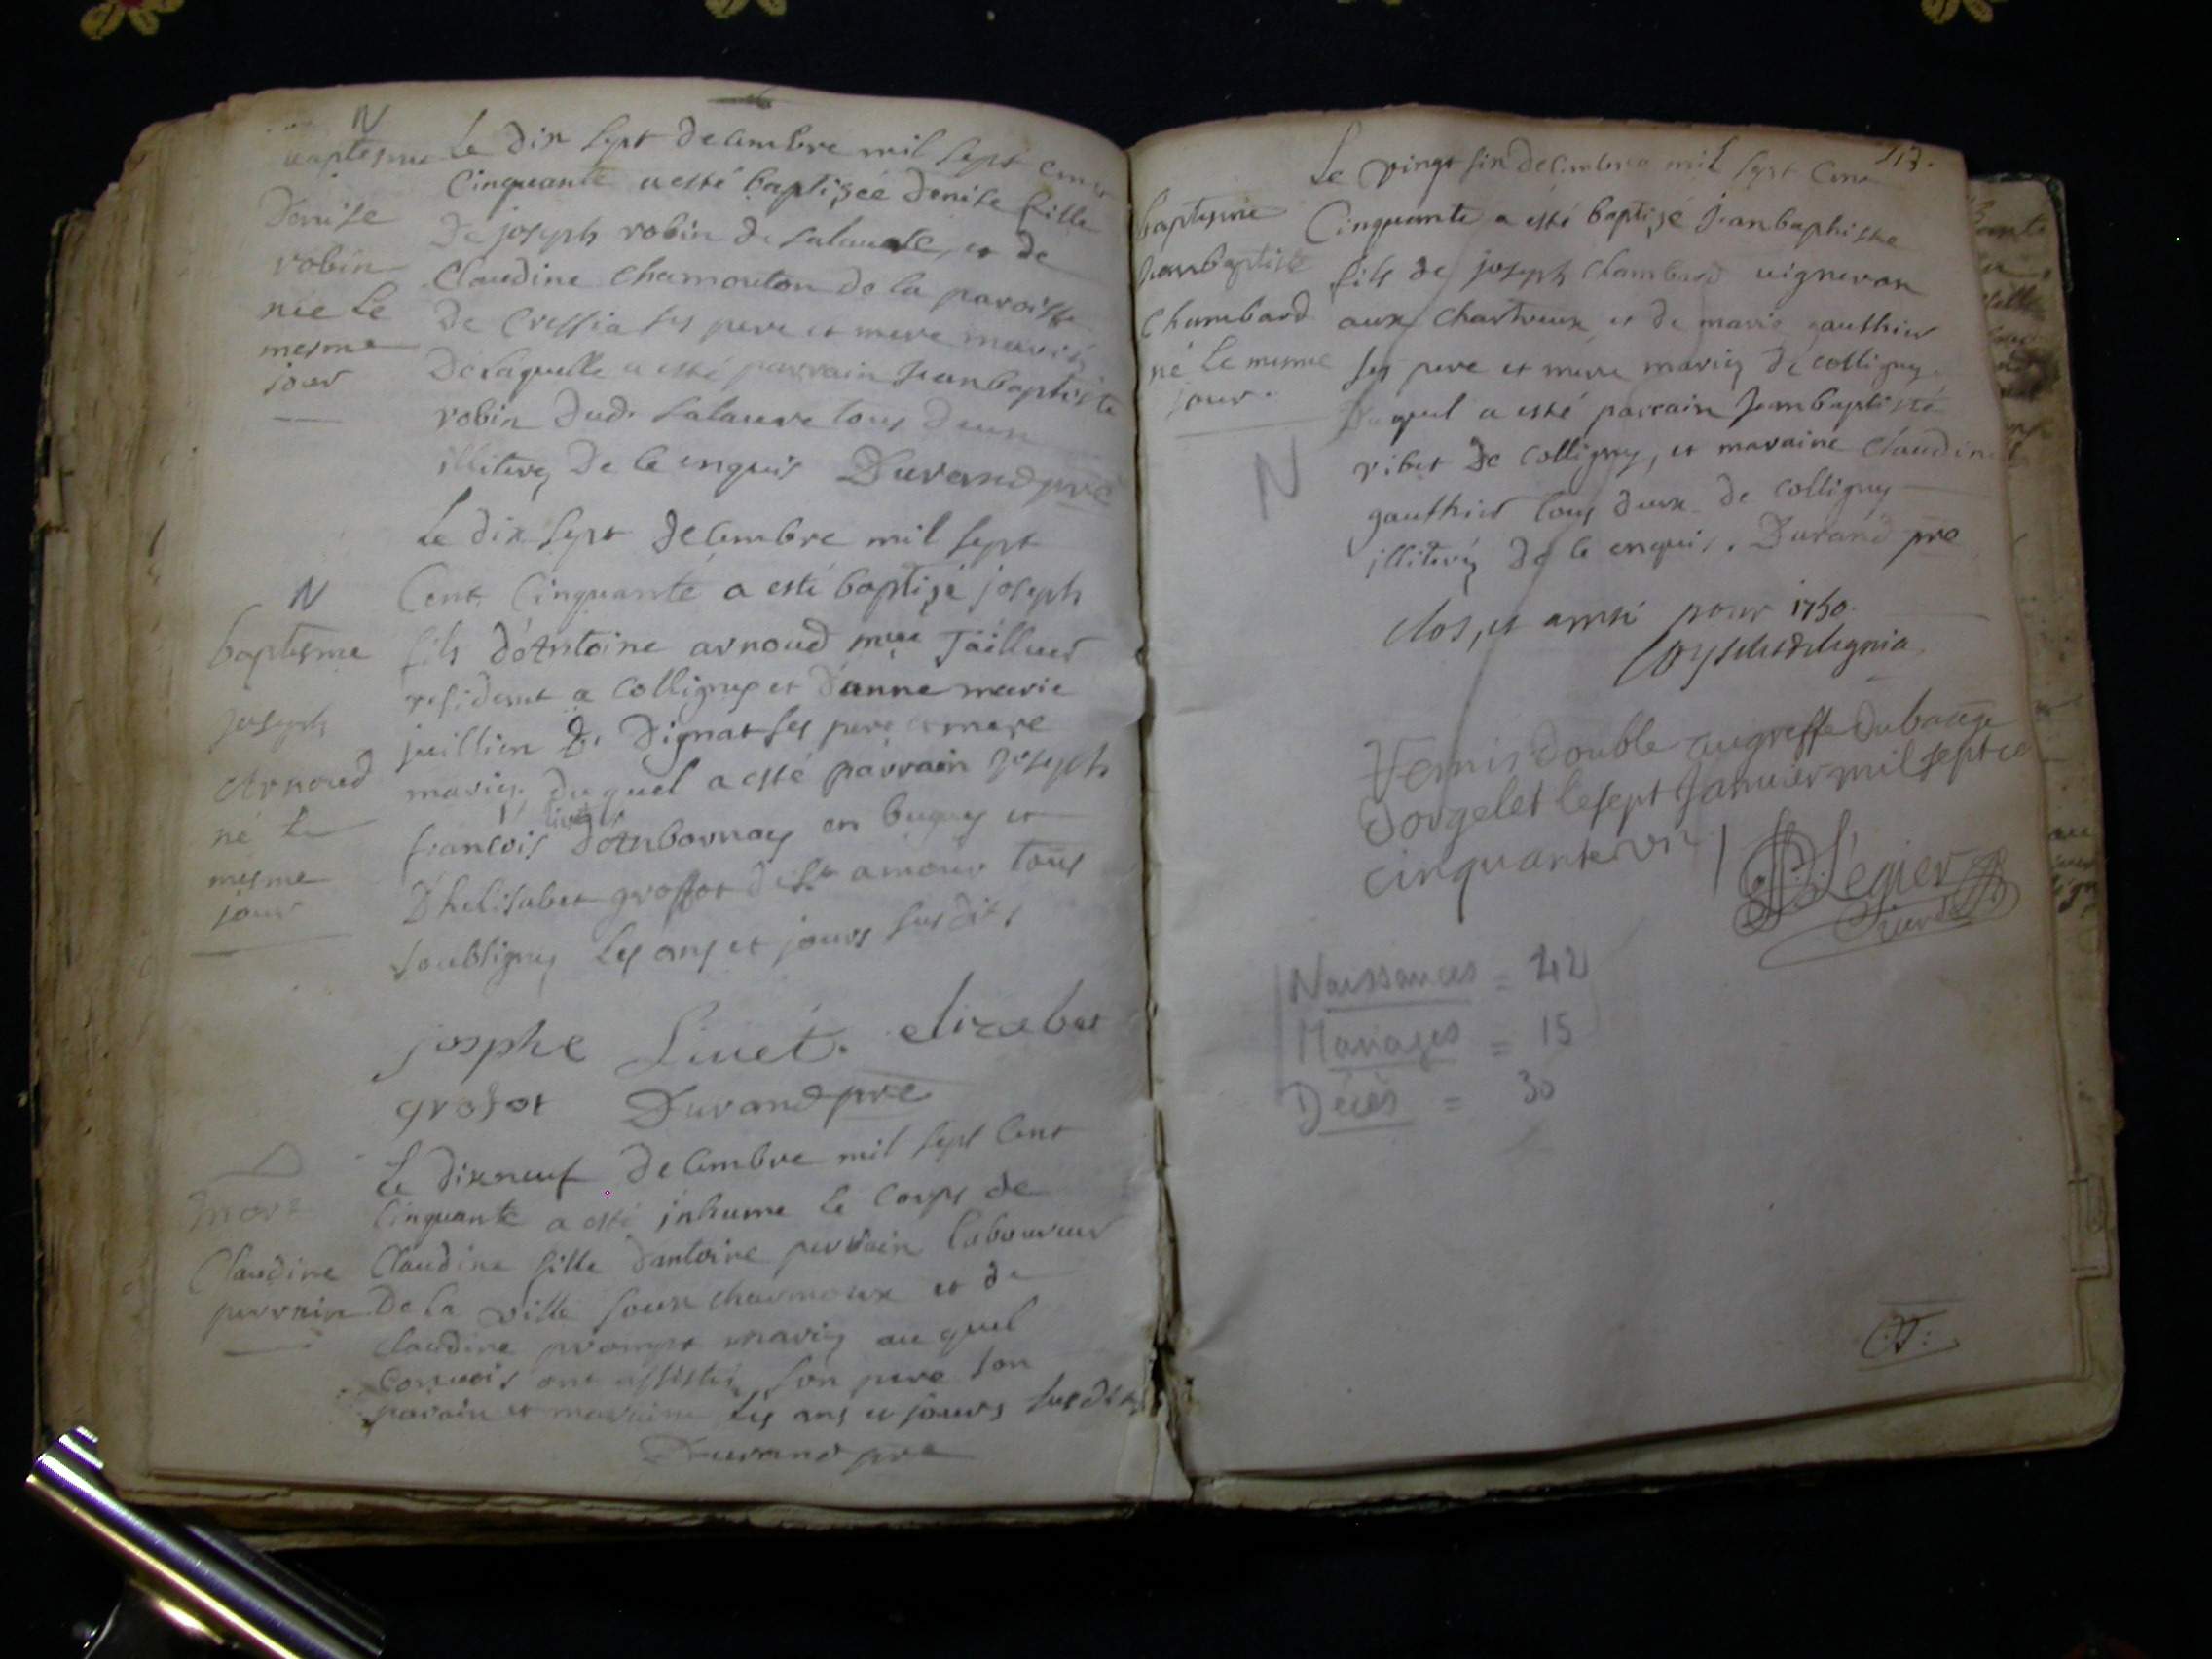 N
baptesme
Denise
robin
née le
mesme
jour
Le dix sept decembre mil sept cent
Cinquante a esté baptizée denise fille
De joseph robin de et de
Claudine chamouton de la paroisse
De Cressia ses pere et mere mariés
De laquelle a esté parrain Jeanbaptiste
robin dud. tous deux
illiterez De ce enquis Durand pre
N
baptesme
joseph
Arnoud
né le
mesme
jour
Le dix sept decembre mil sept
Cent Cinquante a esté baptizé joseph
fils d'Antoine arnoud mtre Tailleur
residant a Colligny et d'anne marie
juillien de Dignat ses pere et mere
mariez, duquel a esté parrain joseph
livet
francois d'Anbornay en bugey et
D'helisabet grossot de st amour tous
soubsignez les ans et jours susdits
josphe Livet. elizabet
grosot Durand pre
mort
Claudine
perrain
Le dixneuf decembre mil sept Cent
Cinquante a esté inhume le Corps de
Claudine fille d'antoine perrain laboureur
De la ville soux charmoux et de
Claudine prompt mariez au quel
Convois ont assistés son pere son
parain et maraine les ans et jours susdits
Durand pre
Le vingt six decembre mil sept Cent
baptesme
Jeanbaptiste
Chambard
né le mesme
jour.
N
Cinquante a esté baptizé Jeanbaptiste
fils de joseph Chambard vigneron
aux Chartreux et de marie gauthier
ses pere et mere mariez de colligny.
Duquel a esté parrain Jeanbaptiste
ribet De Colligny, et maraine Claudine
gauthier tous deux de colligny
illiterez De ce enquis. Durand pre
clos, et ainsi pour 1750.
Vernis double au greffe du bailliage
Dorgelet le sept Janvier mil sept ce
cinquante un
Légier
Naissances = 42
Mariages = 15
Décès = 30